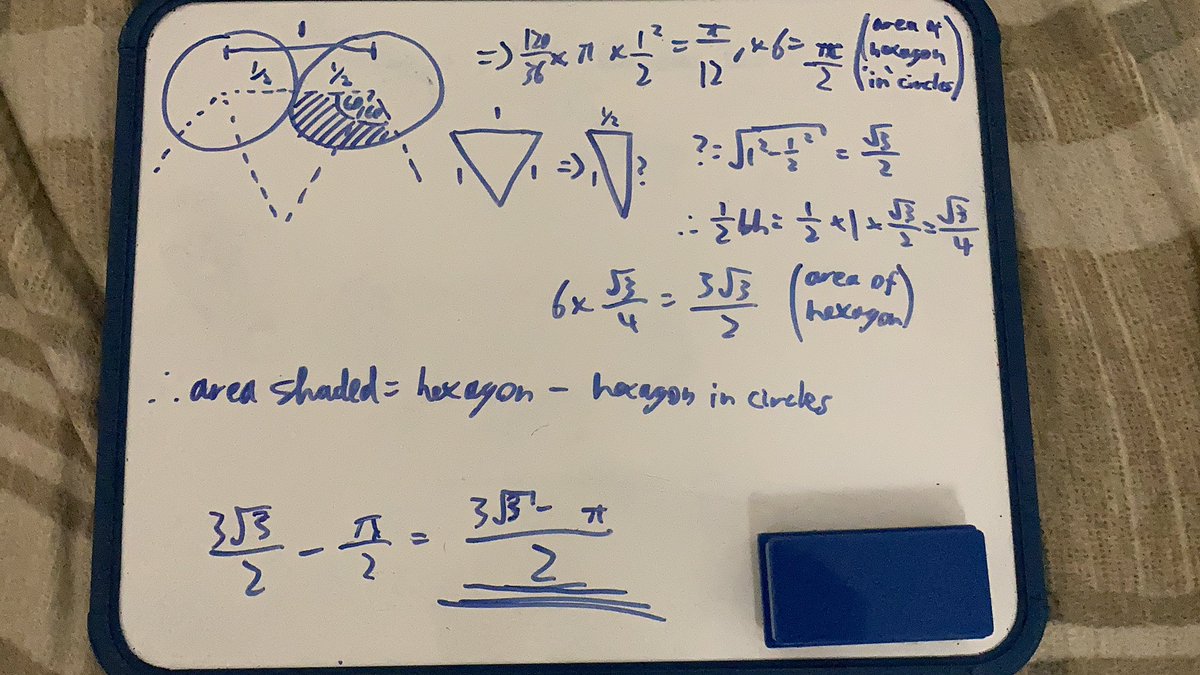 1
1/2 1/2
60° 60
=> 120/36 × π × 1/2² = π/12, × 6 = π/2 (area of hexagon in circles)
1 1 1 => 1/2 1 ?
? = √1² - 1/2² = √3/2
∴ 1/2 bh = 1/2 × 1 × √3/2 = √3/4
6 × √3/4 = 3√3/2 (area of hexagon)
∴ area shaded = hexagon - hexagon in circles
3√3/2 - π/2 = 3√3 - π/2